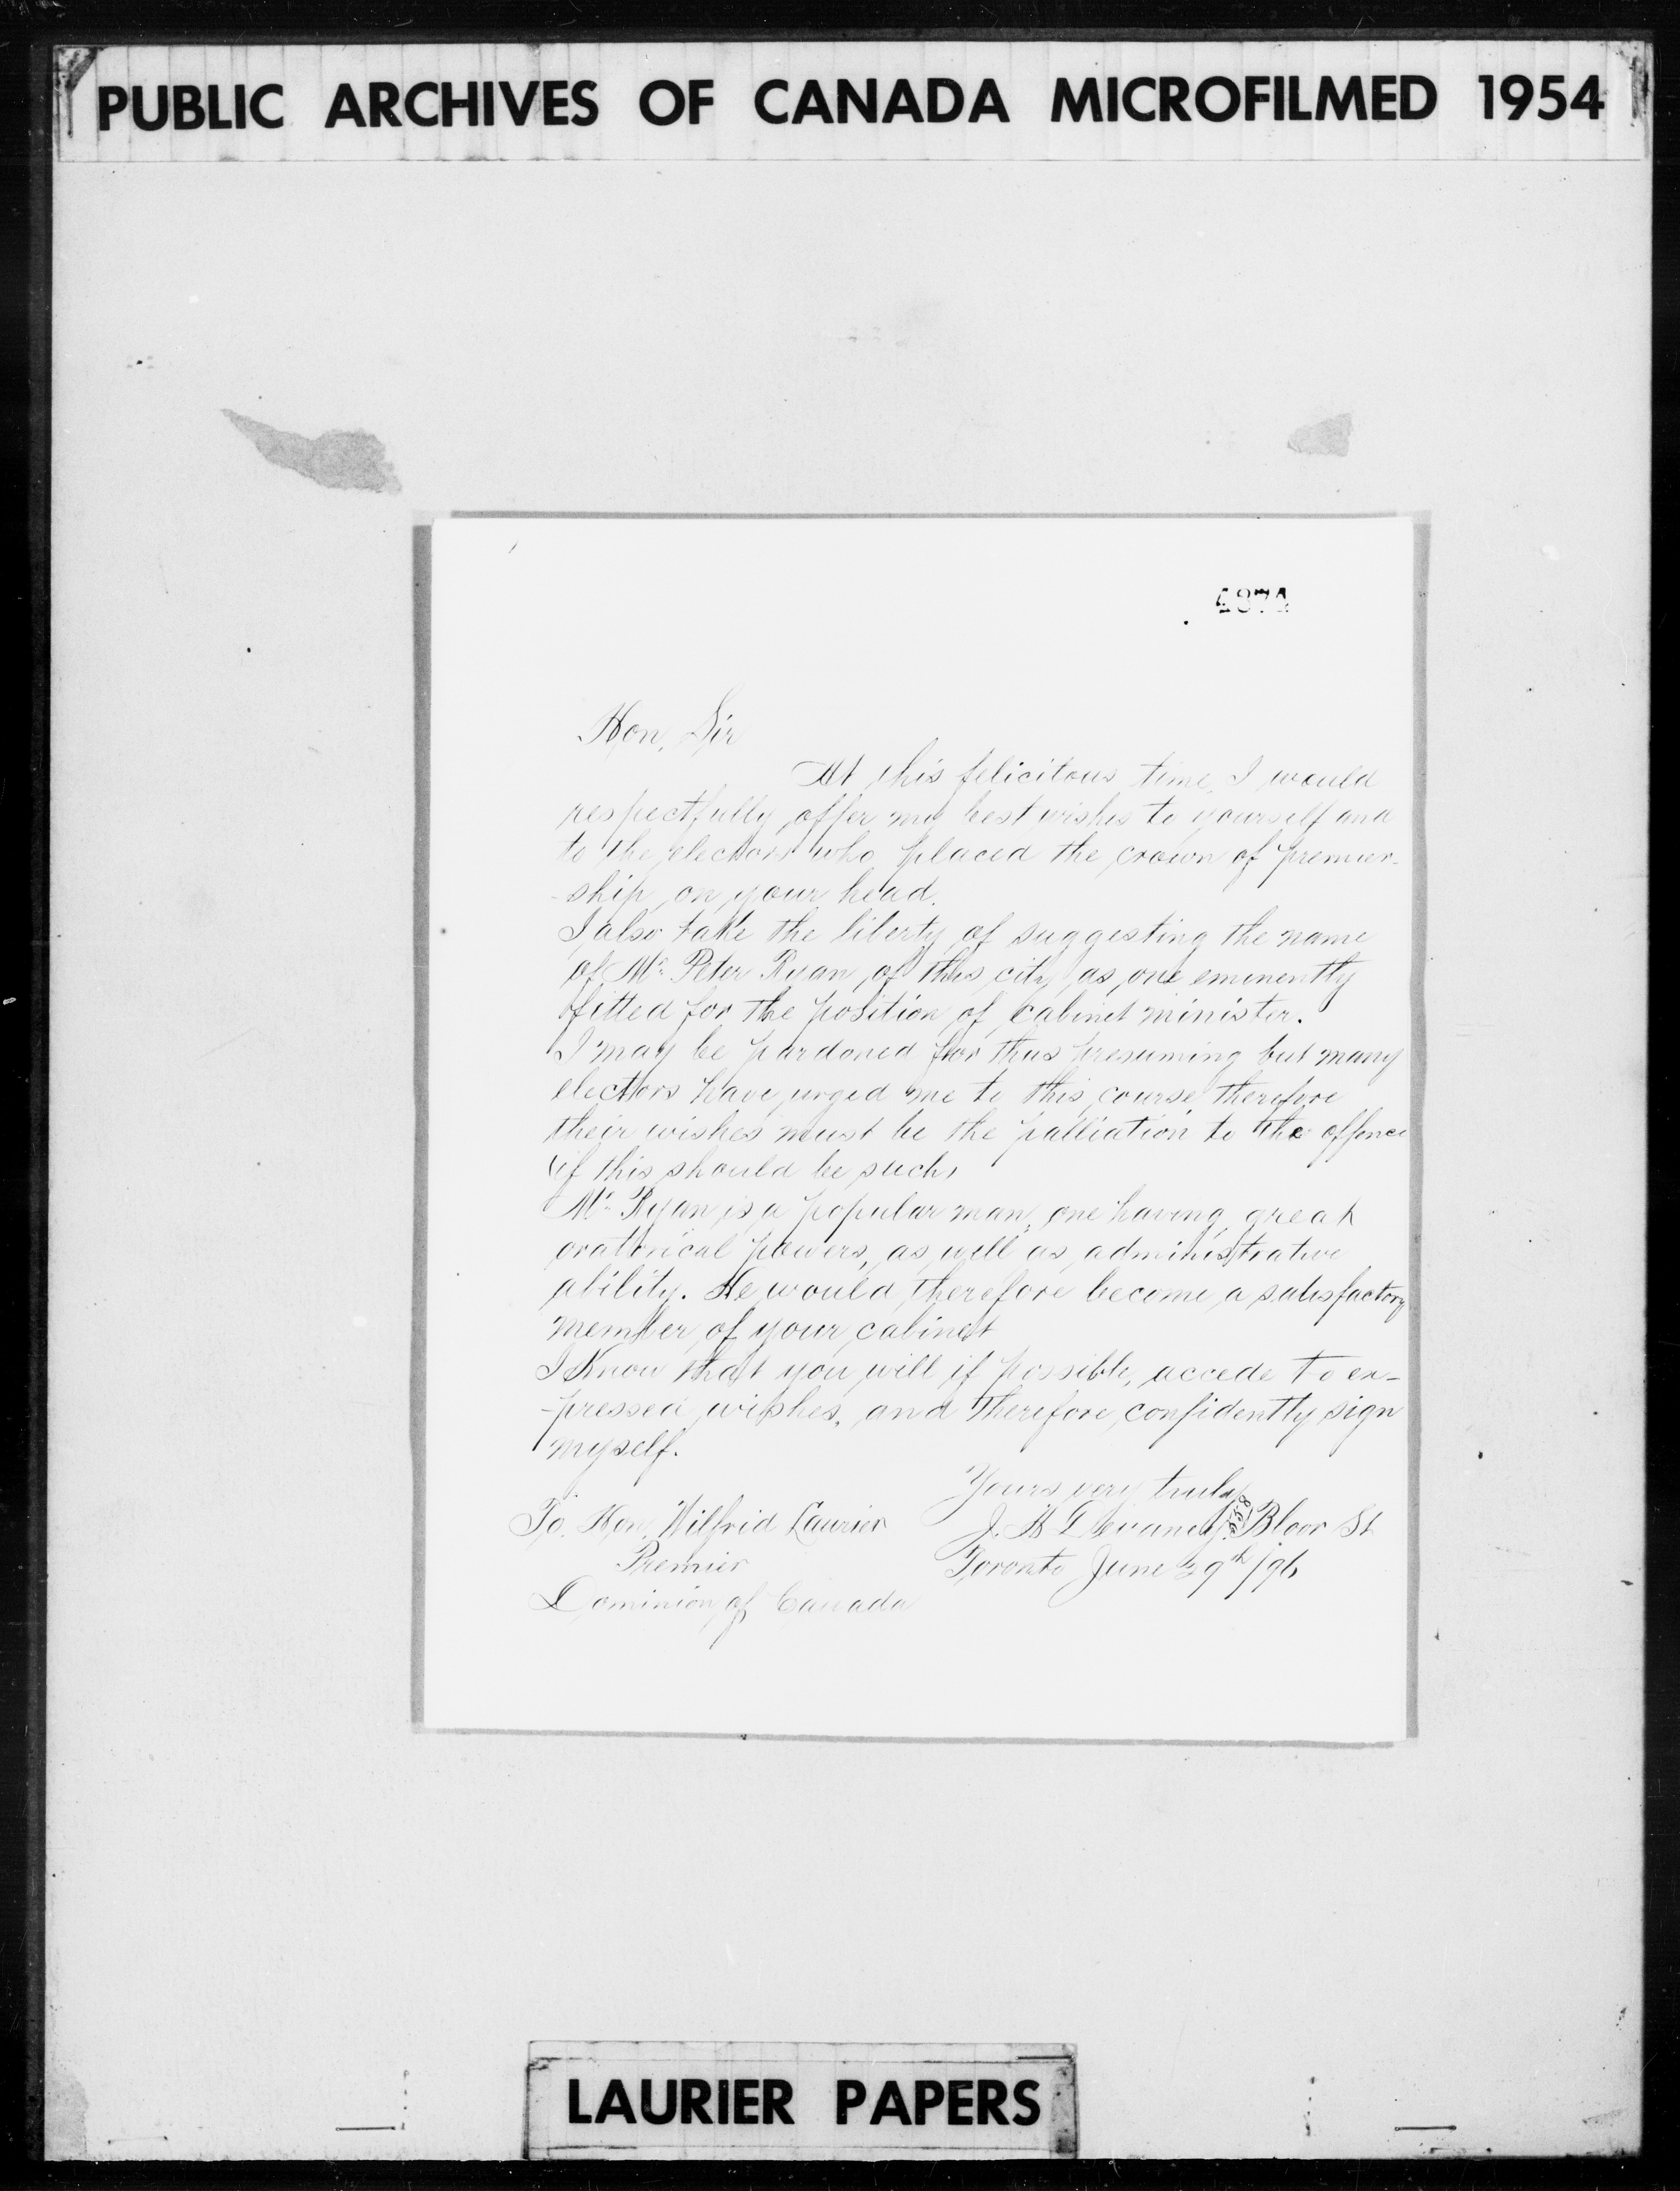 PUBLIC ARCHIVES OF CANADA MICROFILMED 1954
Hon, Sir
At this felicitous time, I would
respectfully offer my best wishes to yourself and
to the electors who placed the crown of premier-
-ship on your head.
I also take the liberty of suggesting the name
of Mr. Peter Ryan of this city as one eminently
fitted for the position of cabinet minister.
I may be pardoned for thus presuming but many
electors have urged me to this course therefore
their wishes must be the palliation to the offence
if this should be such,
Mr. Ryan is a popular man, one having great
oratorical powers, as well as administrative
ability. He would therefore become a satisfactory
member of your cabinet
I Know that you will if possible, accede to ex-
-pressed wishes, and therefore confidently sign
myself.
Yours very truly
J. H. Devaney, 558 Bloor St
Toronto June 29th/96
To. Hon. Wilfrid Laurier
Premier
Dominion of Canada
LAURIER PAPERS